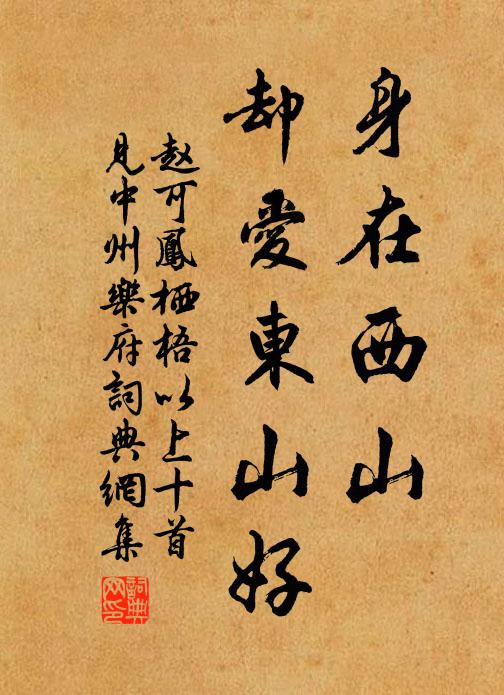 身在西山
却愛東山好
赵可鳳栖梧以上十首
見中州樂府詞典網集
詞典
网印